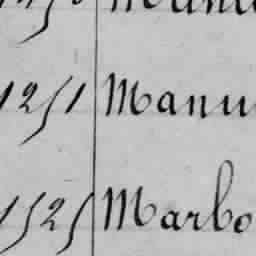 1251 Manu
1525 Marbo